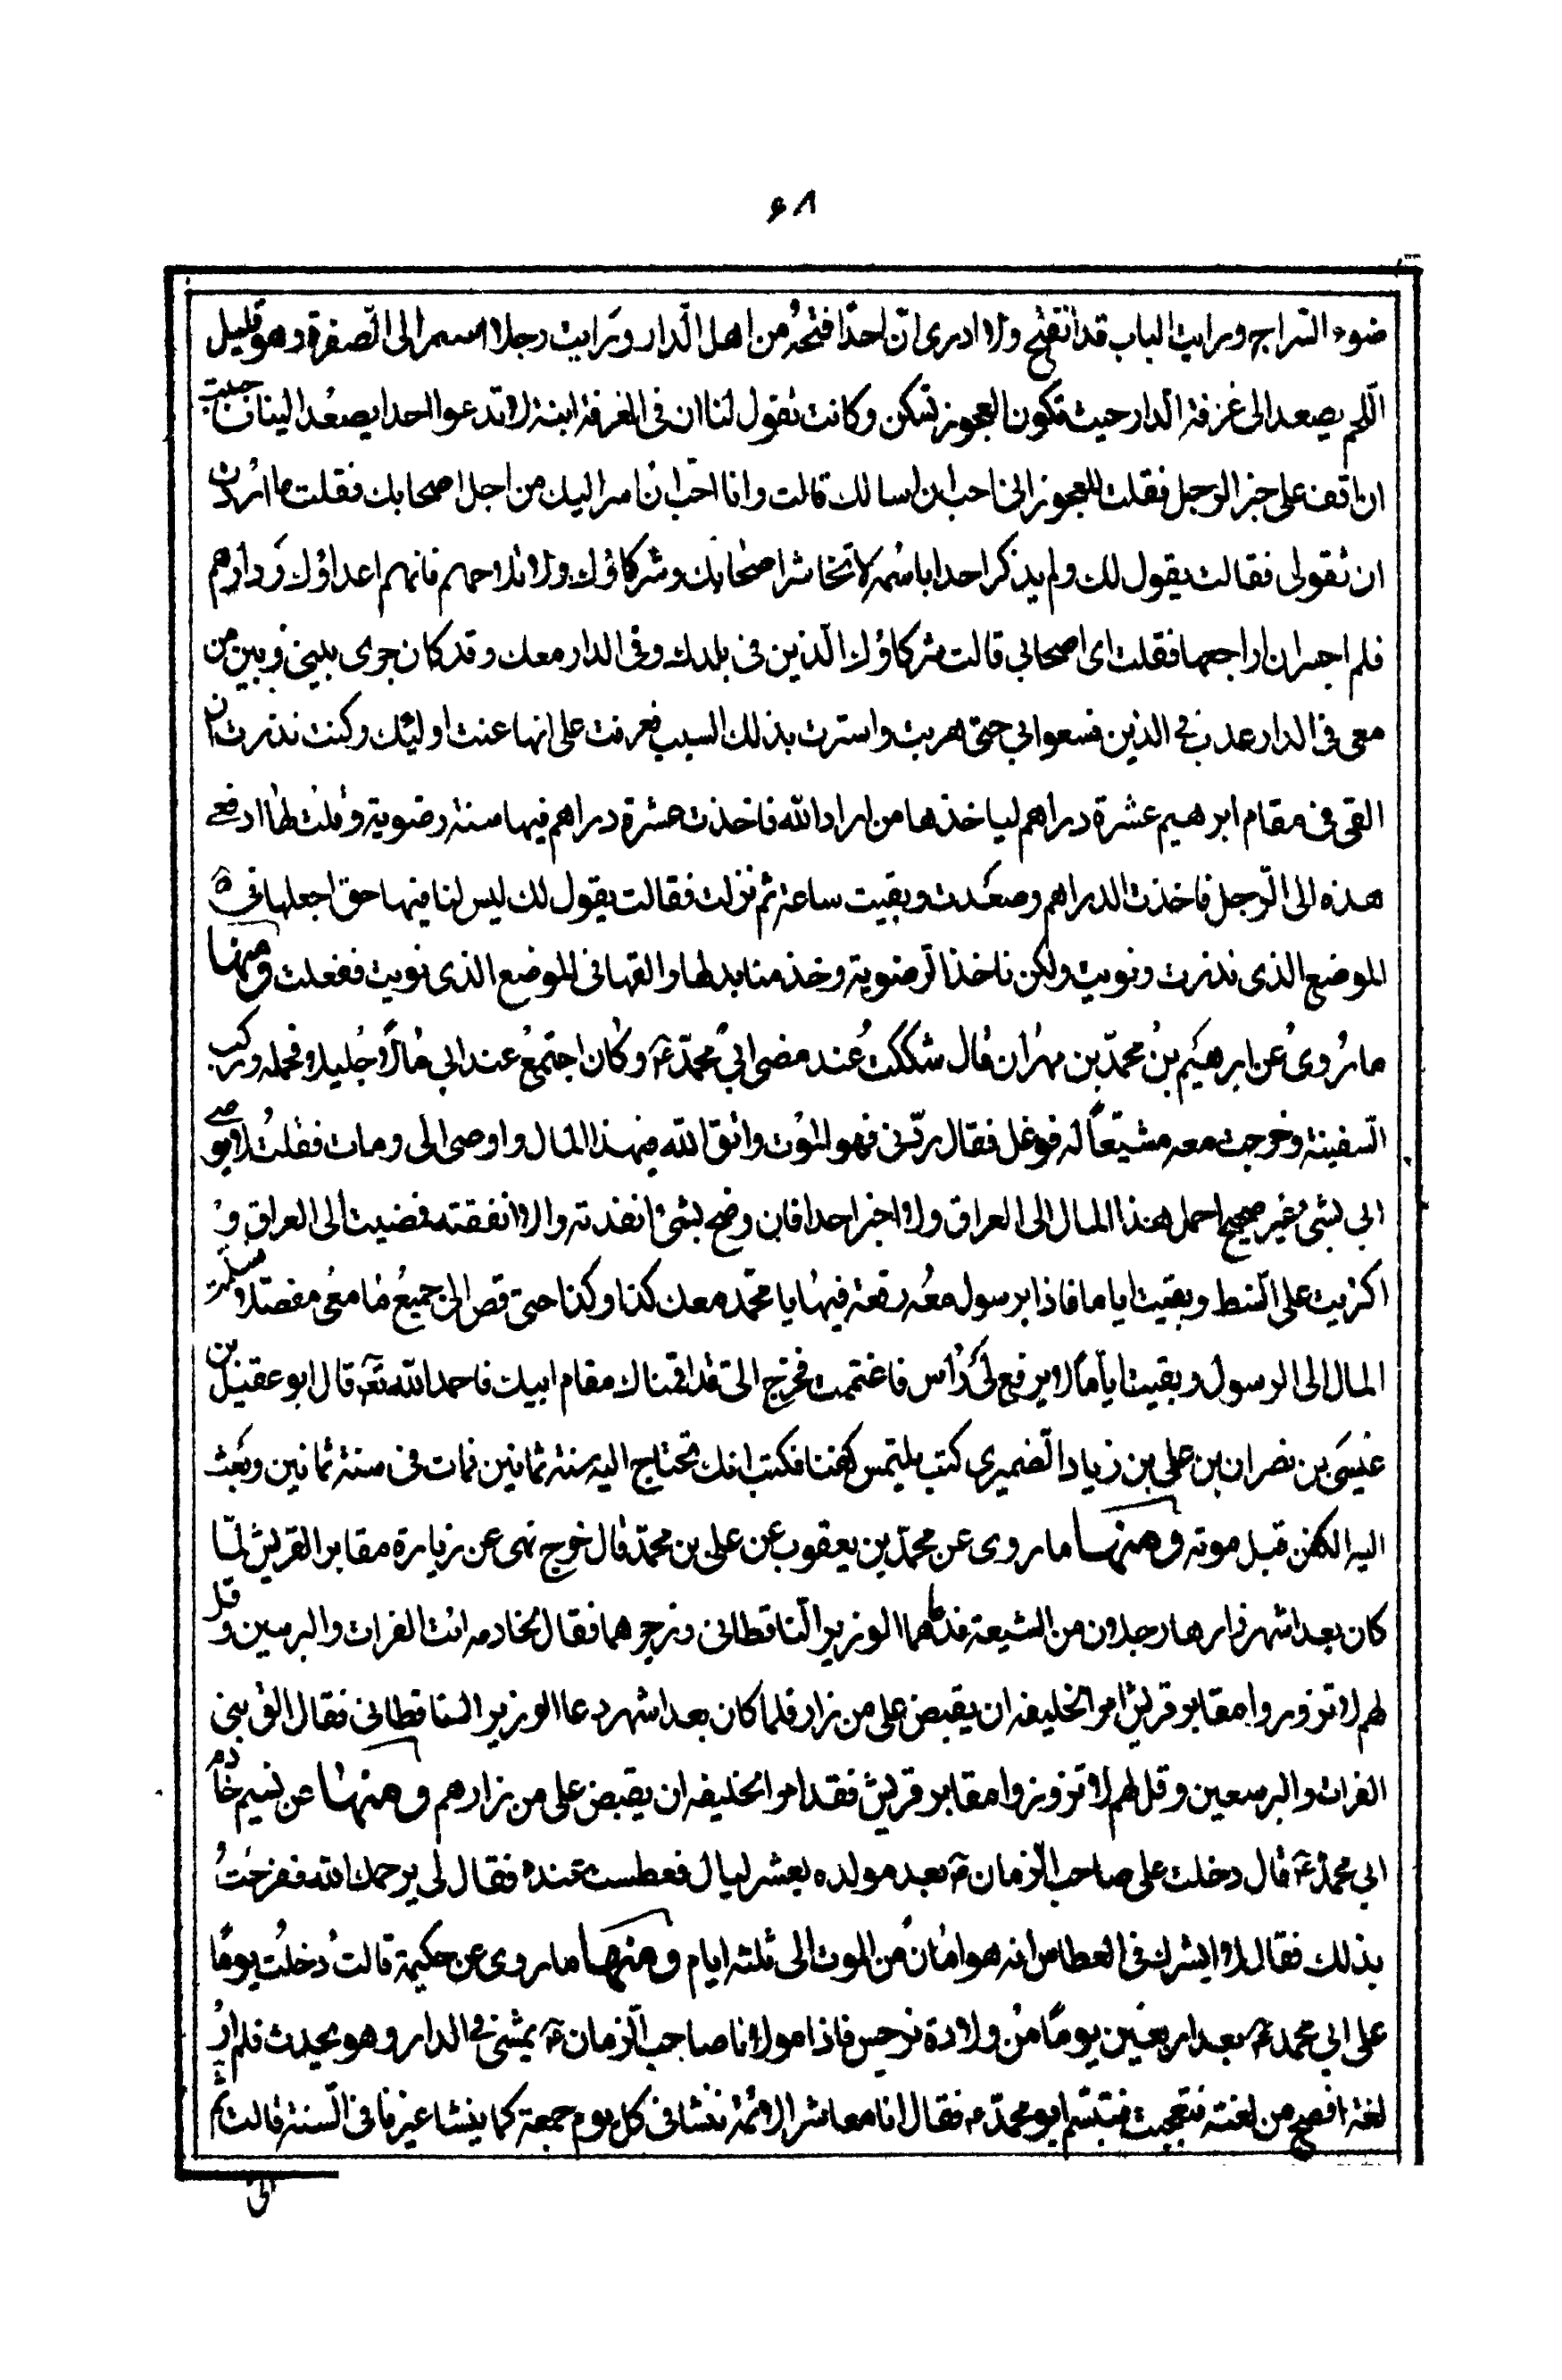 ۶۸
ضوء السراج ورايت الباب قد انفتح ولا ادرى ان احدا فتحه من اهل الدار ورايت رجلا اسمر الى الصفرة وهو قليل
اللحم يصعد الى غرفة الدار حيث تكون العجوز تسكن وكانت تقول لنا ان فى الغرفة ابنة لا تدعوا احدا يصعد الينا فاحببت
ان اقف على خبر الرجل فقلت للعجوز انى احب ان اسالك قالت وانا احب ان اسر اليك من اجل اصحابك فقلت ما اردت
ان تقولى فقالت يقول لك ولم يذكر احدا باسمه لا تخاشر اصحابك وشركاؤك ولا تلاحهم فانهم اعداؤك ودارهم
فلم اجسر ان اراجعها فقلت اى اصحابى قالت شركاؤك الذين فى بلدك وفى الدار معك وقد كان جرى بينى وبين من
معى فى الدار عدب فى الدين فسعوا بى حتى هربت واستترت بذلك السبب فعرفت على انها عنت اوليك وكنت نذرت ان
القى فى مقام ابرهيم عشرة دراهم لياخذها من اراد الله فاخذت عشرة دراهم فيها ستة رضوية وقلت لها ادفعى
هذه الى الرجل فاخذت الدراهم وصعدت وبقيت ساعة ثم نزلت فقالت يقول لك ليس لنا فيها حق اجعلها فى
الموضع الذى نذرت ونويت ولكن ناخذ الرضوية وخذ منا بدلها والقها فى الموضع الذى نويت ففعلت ومنها
ما روى عن ابرهيم بن محمد بن مهران قال شككت عند مضى ابى محمد ع وكان اجتمع عند ابى مالا جليلا فحمله وركب
السفينة وخرجت معه مشيعا له فوعل فقال ردنى فهو الموت واتق الله فى هذا المال واوصى الى ومات فقلت لا يوصى
ابى بشى غير صحيح احمل هذا المال الى العراق ولا اخبر احدا فان وضح بشى انفذته والا انفقته فمضيت الى العراق و
اكتريت على الشط وبقيت اياما فاذا برسول معه رقعة فيها يا محمد معك كذا وكذا حتى قص الى جميع ما معى مفصلا فسلمت
المال الى الرسول وبقيت اياما لا يرفع لى راس فاغتممت فخرج الى قد اقمناك مقام ابيك فاحمد الله تع قال ابو عقيل بن
عيسى بن نصر ان بن على بن زياد الضميرى كتب يلتمس كفنا فكتب انك تحتاج اليه سنة ثمانين فمات فى سنة ثمانين وبعث
اليه الكفن قبل موته ومنها ما روى عن محمد بن يعقوب عن على بن محمد قال خرج نهى عن زيارة مقابر القريش لما
كان بعد اشهر زارها رجلان من الشيعة فدعاهما الوزير الناقطانى وزجرهما فقال لخادمه ائت الفرات والبرسين و قل
لهم لا تزوروا مقابر قريش امر الخليفه ان يقبض على من زار فلما كان بعد اشهر دعا الوزير الناقطانى فقال الق بنى
الفرات والبرسعين وقل لهم لا تزوروا مقابر قريش فقد امر الخليفه ان يقبض على من زارهم ومنها عن نسيم خادم
ابى محمد ع قال دخلت على صاحب الزمان ع بعد مولده بعشر ليال فعطست عنده فقال لى يرحمك الله ففرحت
بذلك فقال الا ابشرك فى العطاس انه هو امان من الموت الى ثلثه ايام ومنها ما روى عن حكيمة قالت دخلت يوما
على ابى محمد ع بعد اربعين يوما من ولادة نرجس فاذا مولانا صاحب الزمان ع يمشى فى الدار وهو يحدث فلم ار
لغة افصح من لغته فتعجبت فتبسم ابو محمد ع فقال انا معاشر الائمة ننشا فى كل يوم جمعة كما ينشا غيرنا فى السنة قالت ثم